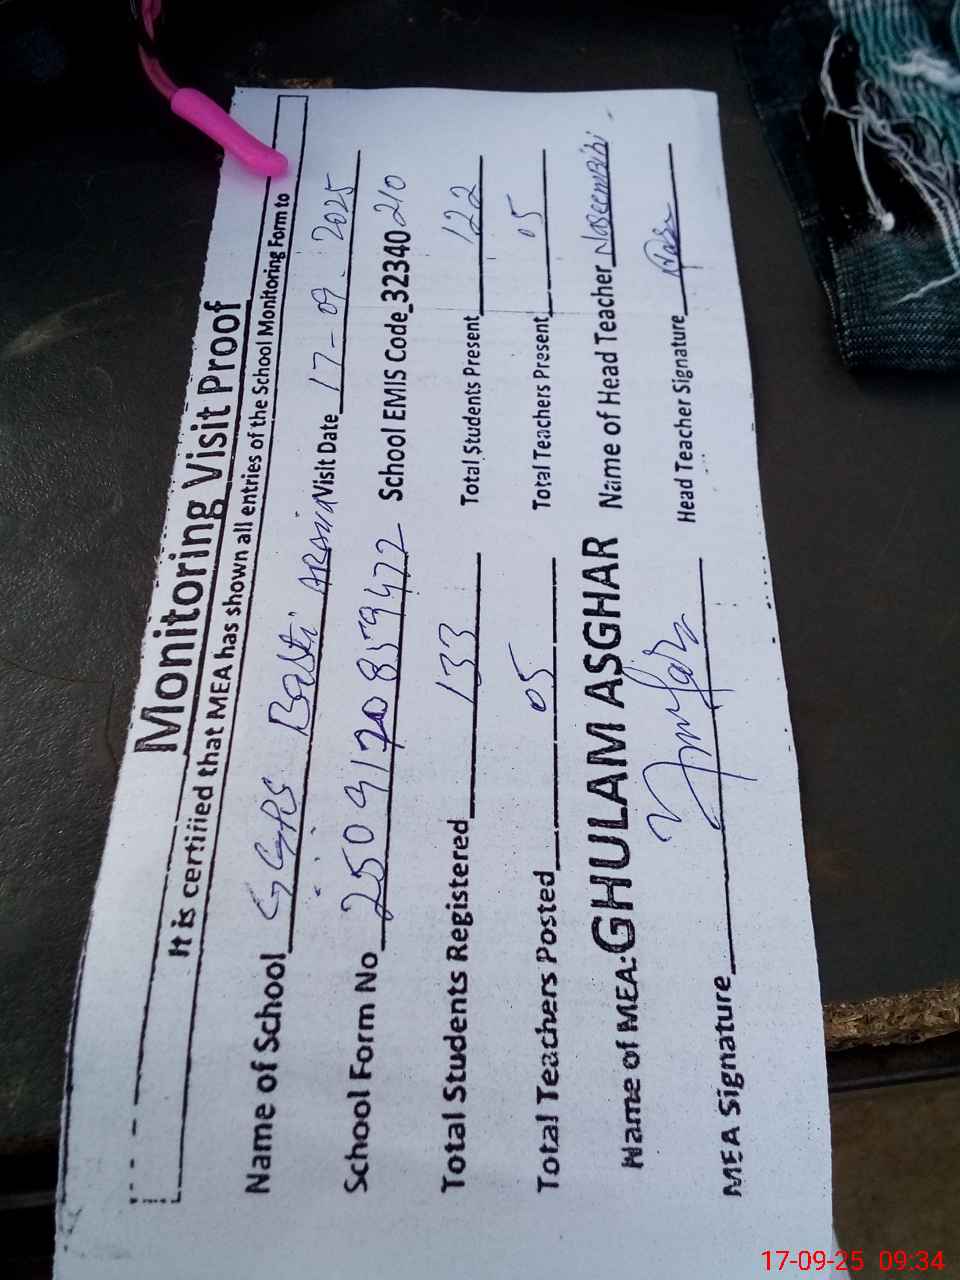 Monitoring Visit Proof
It is certified that MEA has shown all entries of the School Monitoring Form to
Name of School GGPS Basti Visit Date 17-09-2025
School Form No School EMIS Code 32340210
Total Students Registered 133 Total Students Present 122
Total Teachers Posted 05 Total Teachers Present 05
Name of MEA: GHULAM ASGHAR Name of Head Teacher Naseem Bibi
MEA Signature Head Teacher Signature
17-09-25 09:34